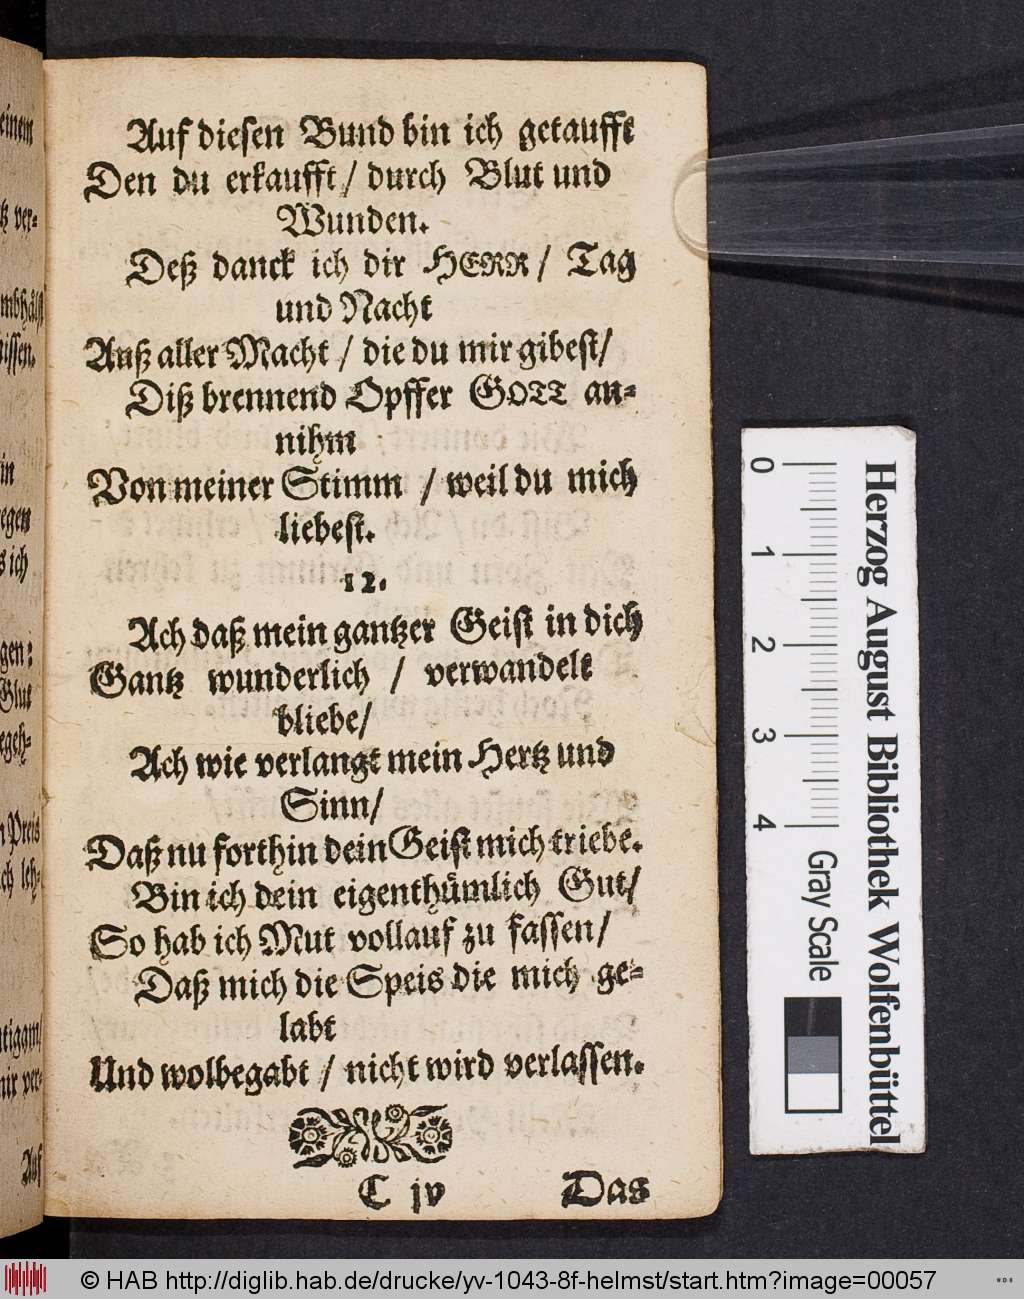 Auf diesen Bund bin ich getaufft
Den du erkaufft / durch Blut und
Wunden.
Deß danck ich dir HERR / Tag
und Nacht
Auß aller Macht / die du mir gibest /
Diß brennend Opffer GOTT an-
nihm
Von meiner Stimm / weil du mich
liebest.
12.
Ach daß mein gantzer Geist in dich
Gantz wunderlich / verwandelt
bliebe /
Ach wie verlangt mein Hertz und
Sinn /
Daß nu forthin dein Geist mich triebe.
Bin ich dein eigenthümlich Gut /
So hab ich Mut vollauf zu fassen /
Daß mich die Speis die mich ge-
labt
Und wolbegabt / nicht wird verlassen.
C jv Das
einem
tz ver-
issen.
in
egen
s ich
gen:
Glut
egeh-
n Preis
ch leh-
tigam /
mir ver-
Auf
0 1 2 3 4
Gray Scale
Herzog August Bibliothek Wolfenbüttel
© HAB http://diglib.hab.de/drucke/yv-1043-8f-helmst/start.htm?image=00057